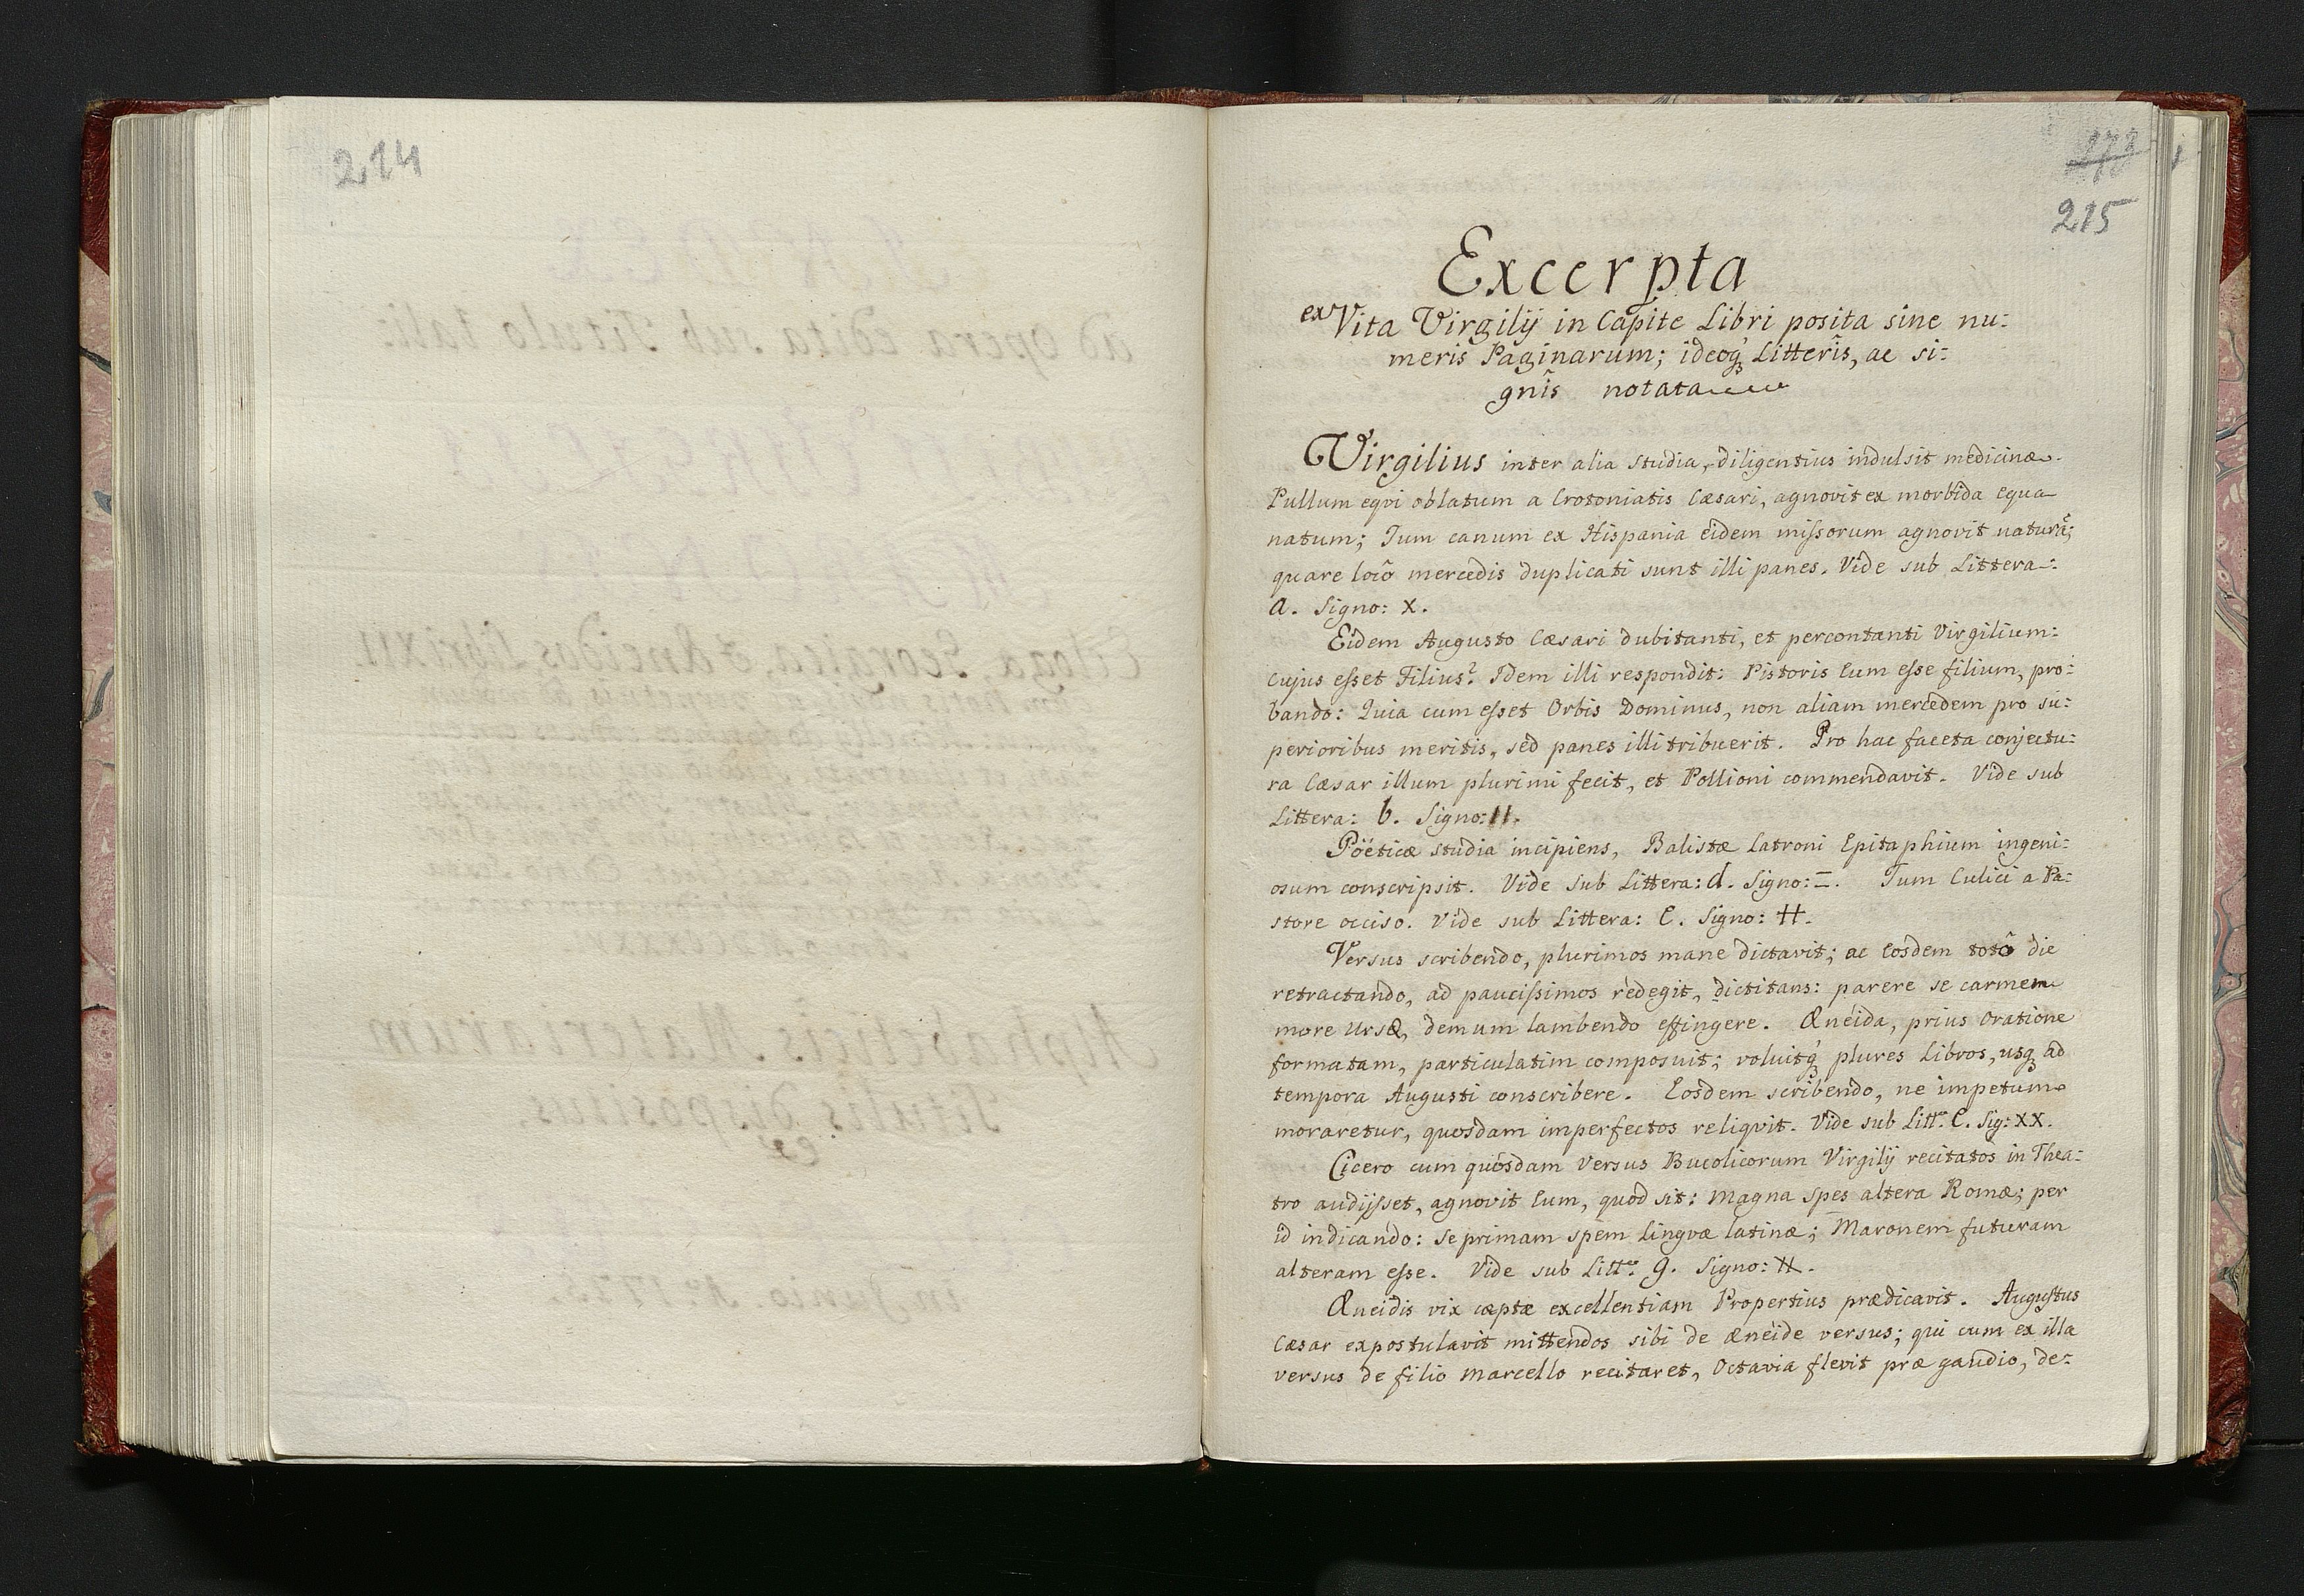 214
215
Excerpta
ex Vita Virgilij in Capite Libri posita sine nu:
meris Paginarum; ideoq́ꝫ Litterîs, ac si:
gnîs notata
Virgilius inter alia studia, diligentius indulsit medicinæ.
Pullum eqvi oblatum a Crotoniatis Cæsari, agnovit ex morbida equa
natum; Tum canum ex Hispania eidem miſsorum agnovit naturã;
quare locô mercedis duplicati sunt illi panes. Vide sub Littera:
a. Signo: x.
Eidem Augusto Cæsari dubitanti, et percontanti Virgilium:
cujus eſset Filius? Idem illi respondit: Pistoris Eum eſse filium, pro:
bando: Quia cum eſset Orbis Dominus, non aliam mercedem pro su:
perioribus meritis, sed panes illi tribuerit. Pro hac faceta conjectu:
ra Cæsar illum plurimi fecit, et Pollioni commendavit. Vide sub
Littera: b. Signo: II.
Pöéticæ studia incipiens, Balistæ Latroni Epitaphium ingeni:
osum conscripsit. Vide sub Littera: d. Signo: =. Tum Culici a Pa:
store occiso. Vide sub Littera: E. Signo: #.
Versus scribendo, plurimos mane dictavit; ac Eosdem totô die
retractando, ad pauciſsimos redegit, dictitans: parere se carmen
more Ursæ, demum lambendo effingere. Æneida, prius Oratione
formatam, particulatim composuit; voluitq́ꝫ plures Libros, usqꝫ ad
tempora Augusti conscribere. Eosdem scribendo, ne impetum
moraretur, quosdam imperfectos reliqvit. Vide sub Litt: E. Sig: XX.
Cicero cum quosdam Versus Bucolicorum Virgilij recitatos in Thea:
tro audijſset, agnovit Eum, quod sit: Magna spes altera Romæ; per
id indicando: Se primam spem Lingvæ latinæ; Maronem futuram
alteram eſse. Vide sub Litt: g. Signo: #.
Æneidis vix cæptæ excellentiam Propertius prædicavit. Auguſtus
Cæsar expostulavit mittendos sibi de Æneide versus; qui cum ex illa
versus de filio Marcello recitaret, Octavia flevit præ gaudio, de: